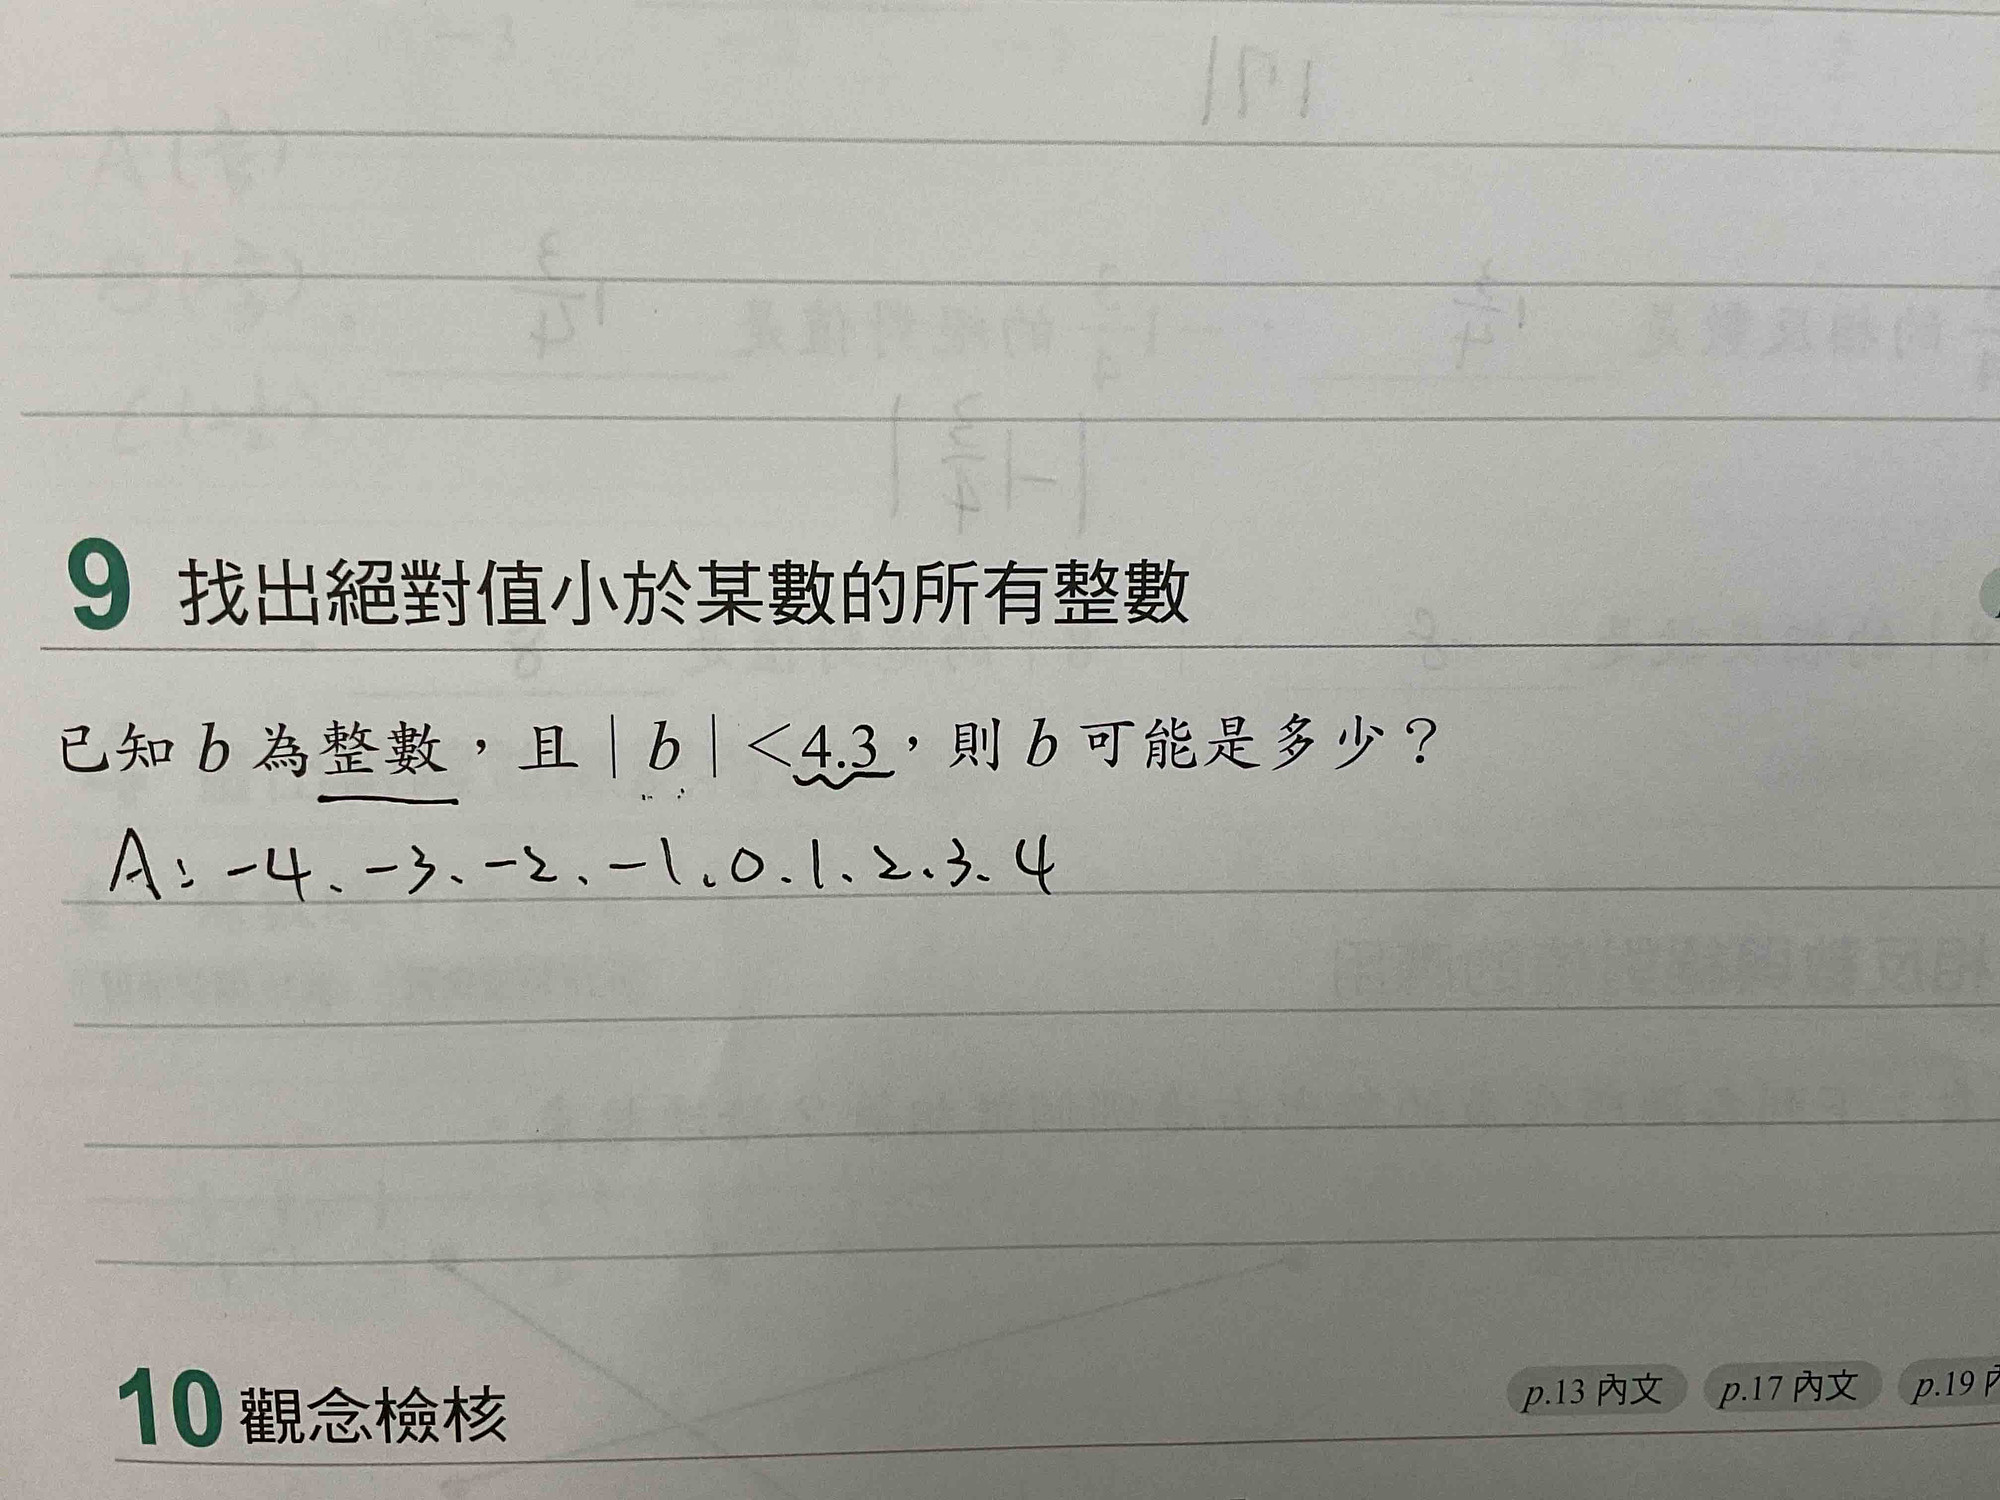 9 找出絕對值小於某數的所有整數
已知 b 為整數，且 | b | <4.3，則 b 可能是多少？
A：-4、-3、-2、-1、0、1、2、3、4
10 觀念檢核 p.13 內文 p.17 內文 p.19